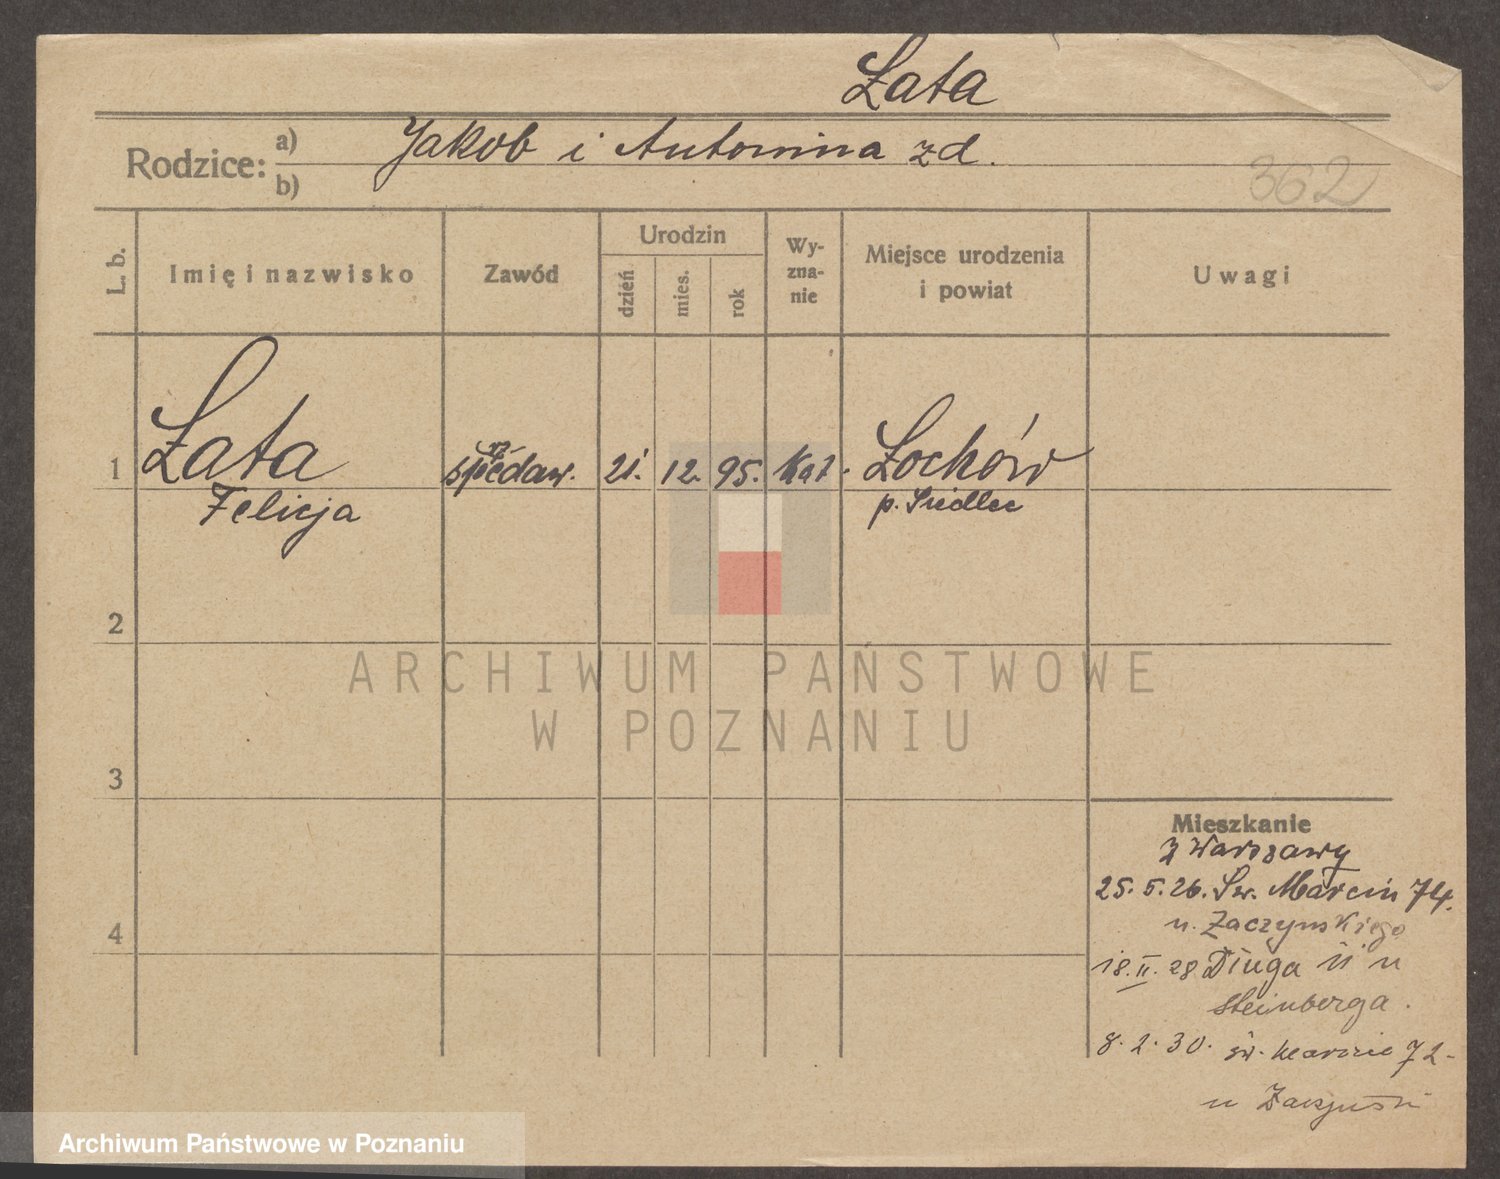 Łata
Rodzice: a) Jakob i Antonina zd.
b)
362
L. b. Imię i nazwisko Zawód Urodzin dzień mies. rok Wyznanie Miejsce urodzenia i powiat Uwagi
1 Łata sprzedaw. 21. 12. 95. Kat. Łochów
Felicja p. Siedlce
2
ARCHIWUM PAŃSTWOWE
W POZNANIU
3
Mieszkanie
z Warszawy
25.5.26. Św. Marcin 74.
4
u. Zaczyńskiego
18.II.28 Długa 11 u
Steinberga.
8.2.30. św. Marcin 72-
u
Archiwum Państwowe w Poznaniu